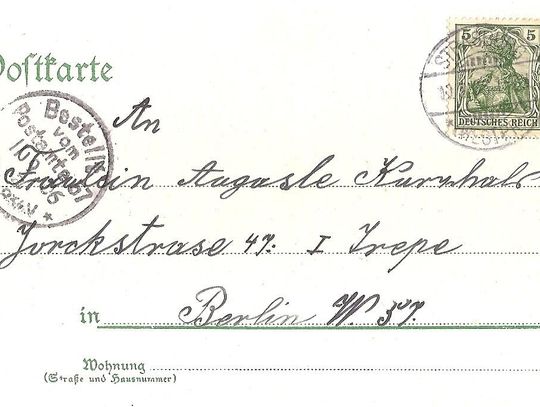 Postkarte
5 5
DEUTSCHES REICH
Bestellt
vom
Postamte 57
An
Fräulein Auguste Kurnhals
Yorckstrase 47. I Trepe
in Berlin W. 57.
Wohnung
(Straße und Hausnummer)